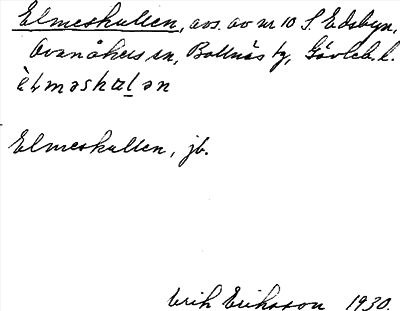 Elmeskullen, avs. av nr 10 S. Edsbyn,
Ovanåkers sn, Bollnäs tg, Gävleb. l.
èLməshaḻən
Elmeskullen, jb.
Erik Eriksson 1930.